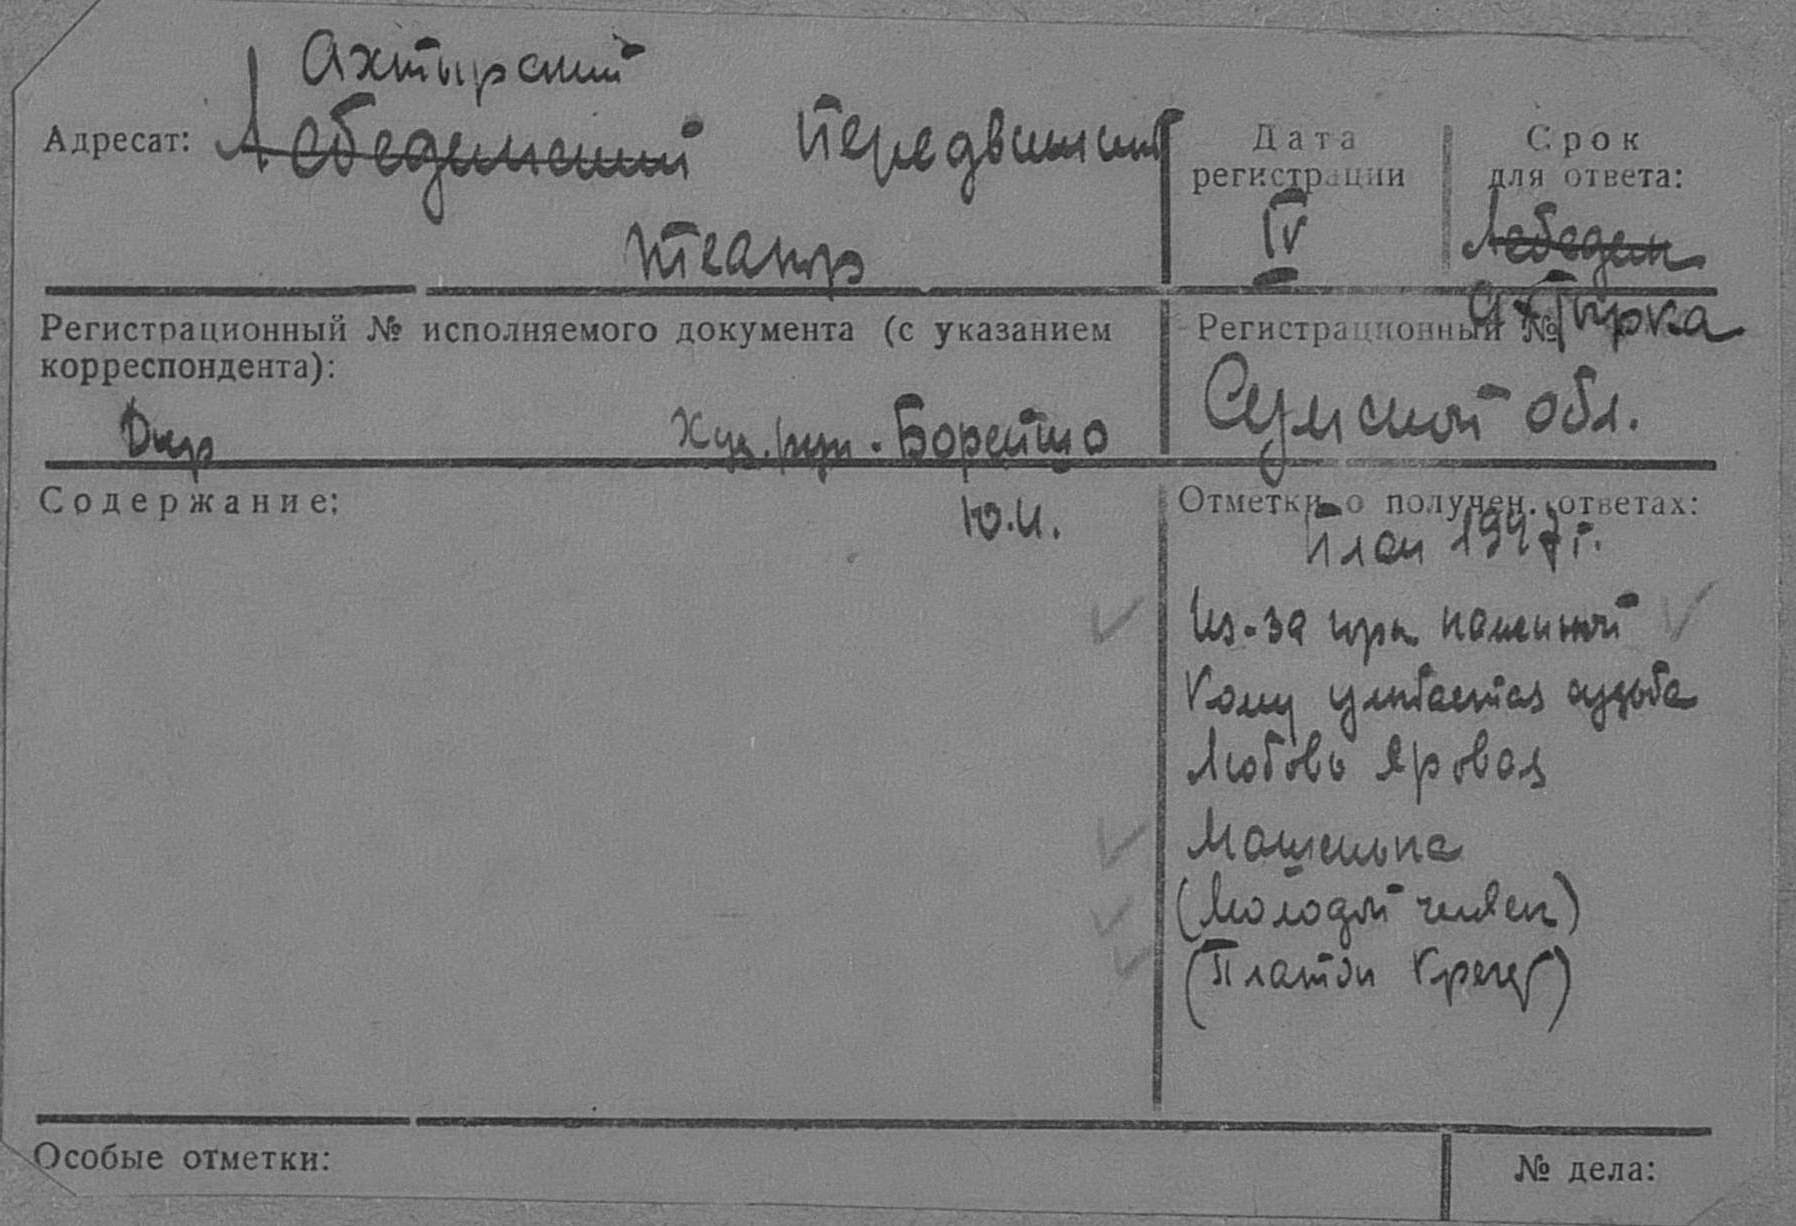 Ахтырский
Адресат: Лебединский передвижний
театр
Дата регистрации
IV
Срок для ответа:
Лебедин
Ахтырка
Регистрационный № исполняемого документа (с указанием
корреспондента):
Дир Худ. рук. Борейшо
Ю.И.
Регистрационный №
Сумской обл.
Содержание:
Отметки о получен. ответах:
План 1947 г.
Из-за горы каменной
Кому улыбается судьба
Любовь Яровая
Машенька
(Молодой челвек)
(Платон Кречет)
Особые отметки:
№ дела: